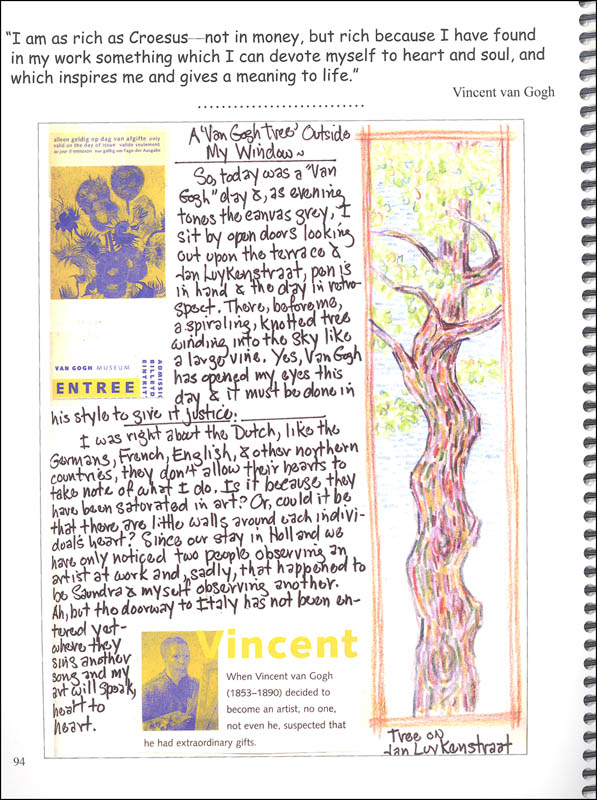 “I am as rich as Croesus—not in money, but rich because I have found
in my work something which I can devote myself to heart and soul, and
which inspires me and gives a meaning to life.”
Vincent van Gogh
alleen geldig op dag van afgifte only
valid on the day of issue valide seulement
au jour d'émission nur gültig am Tage der Ausgabe
VAN GOGH MUSEUM
ENTREE
ADMISSIO
BILLET D
EINTRIT
A ‘Van Gogh Tree’ Outside
My Window~
So, today was a “Van
Gogh” day &, as evening
tones the canvas grey, I
sit by open doors looking
out upon the terrace &
Jan Luykenstraat, pen is
in hand & the day in retro-
spect. There, before me,
a spiraling, knotted tree
winding into the sky like
a large vine. Yes, Van Gogh
has opened my eyes this
day & it must be done in
his style to give it justice.
I was right about the Dutch, like the
Germans, French, English, & other northern
countries, they don't allow their hearts to
take note of what I do. Is it because they
have been saturated in art? Or, could it be
that there are little walls around each indivi-
duals heart? Since our stay in Holland we
have only noticed two people observing an
artist at work and, sadly, that happened to
be Saundra & myself observing another.
Ah, but the doorway to Italy has not been en-
tered yet-
where they
sing another
song and my
art will speak,
heart to
heart.
Vincent
When Vincent van Gogh
(1853–1890) decided to
become an artist, no one,
not even he, suspected that
he had extraordinary gifts.
Tree on
Jan Luykenstraat
94